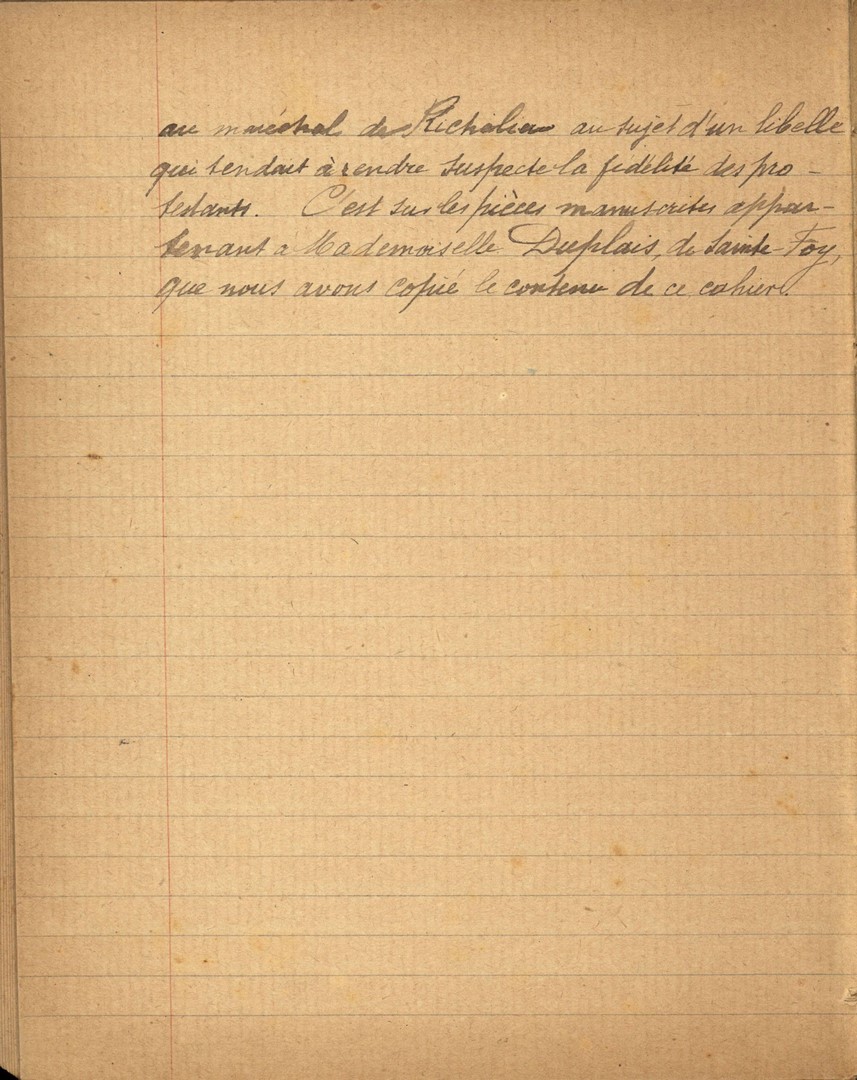 au maréchal de Richelieu au sujet d'un libelle
qui tendait à rendre suspecte la fidélité des pro-
testants. C'est sur les pièces manuscrites appar-
tenant a Mademoiselle Duplais, de Sainte-Foy,
que nous avons copié le contenu de ce cahier.